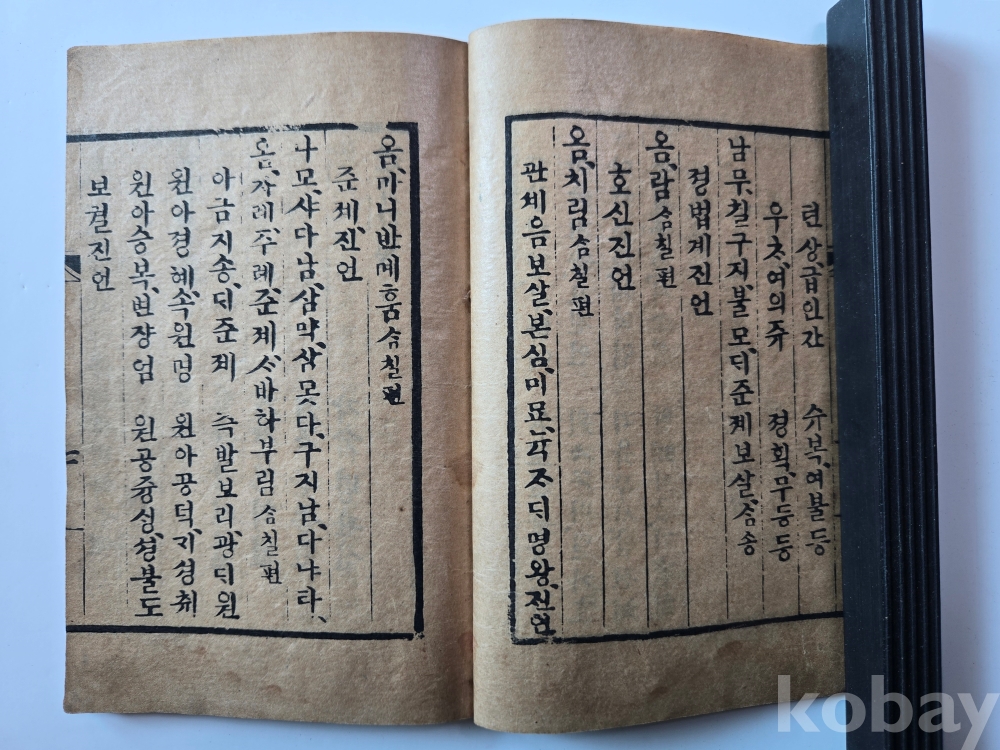 텬상,급인간 슈복,여불등
우ᄎᆞ,여의쥬 졍획,무등등
남무,칠구지,불모,ᄃᆡ준졔보살,ᄉᆞᆷ송
졍법계진언
옴,람 ᄉᆞᆷ칠편
호신진언
옴,치림 ᄉᆞᆷ칠편
관세음보살,본심,미묘,뉵ᄌᆞᄃᆡ명왕,진언
옴,마니반메훔 ᄉᆞᆷ칠편
준졔,진언
나모,사다남,삼먁,삼못다,구지남,다냐타,
옴,자레,주례,준졔,ᄉᆞ바하부림 ᄉᆞᆷ칠편
아금지송,ᄃᆡ준졔 즉발보리,광ᄃᆡ원
원아졍혜,속원명 원아공덕,ᄀᆡ셩취
원아승복,변쟝엄 원공즁ᄉᆡᆼ,셩불도
보궐진언
kobay